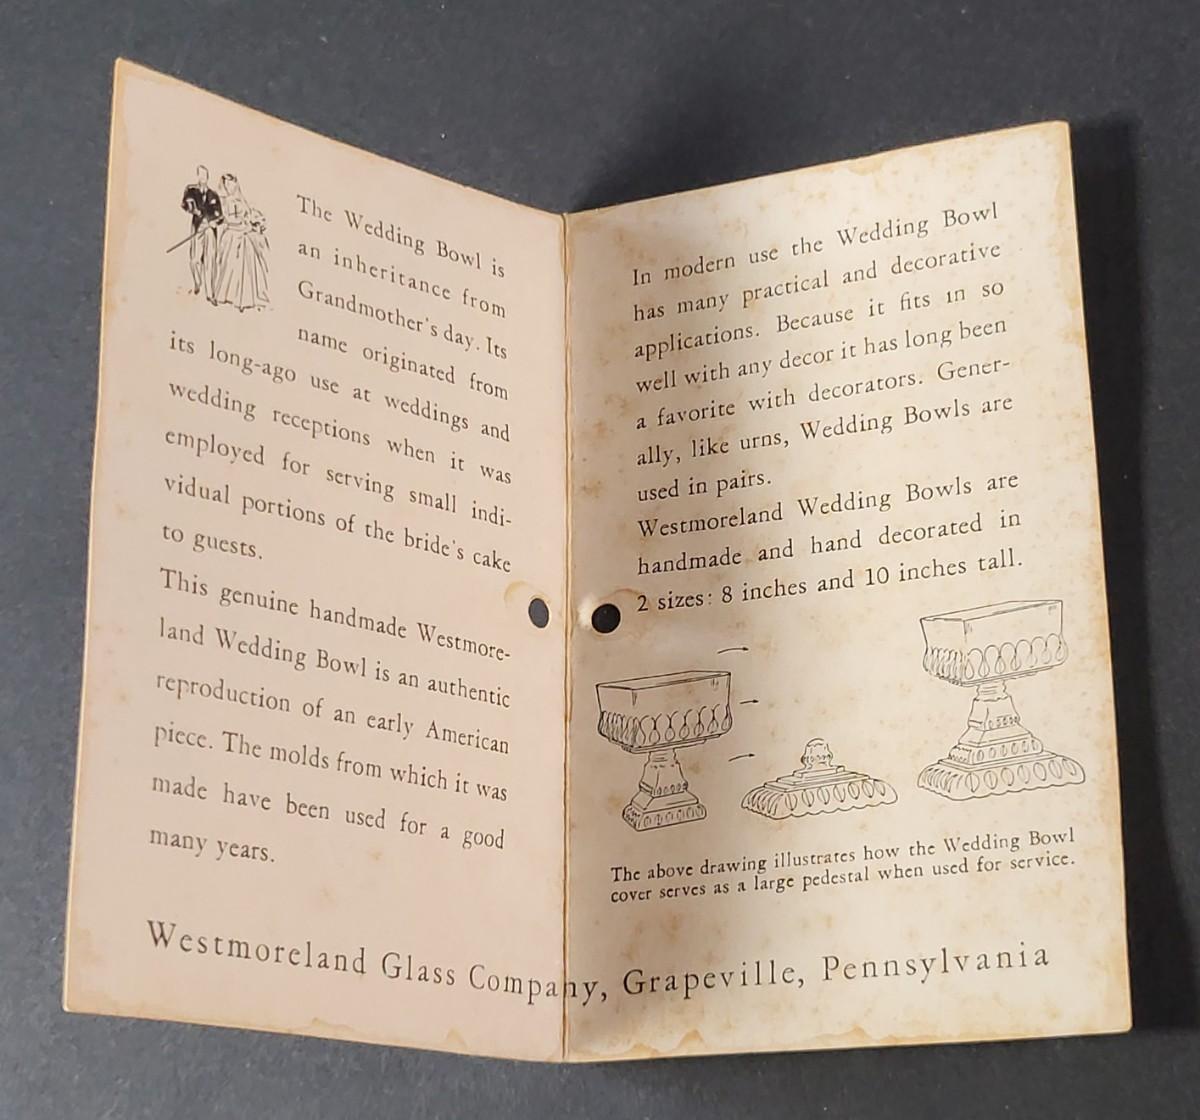 The Wedding Bowl is
an inheritance from
Grandmother's day. Its
name originated from
its long-ago use at weddings and
wedding receptions when it was
employed for serving small indi-
vidual portions of the bride's cake
to guests.
This genuine handmade Westmore-
land Wedding Bowl is an authentic
reproduction of an early American
piece. The molds from which it was
made have been used for a good
many years.
In modern use the Wedding Bowl
has many practical and decorative
applications. Because it fits in so
well with any decor it has long been
a favorite with decorators. Gener-
ally, like urns, Wedding Bowls are
used in pairs.
Westmoreland Wedding Bowls are
handmade and hand decorated in
2 sizes: 8 inches and 10 inches tall.
The above drawing illustrates how the Wedding Bowl
cover serves as a large pedestal when used for service.
Westmoreland Glass Company, Grapeville, Pennsylvania